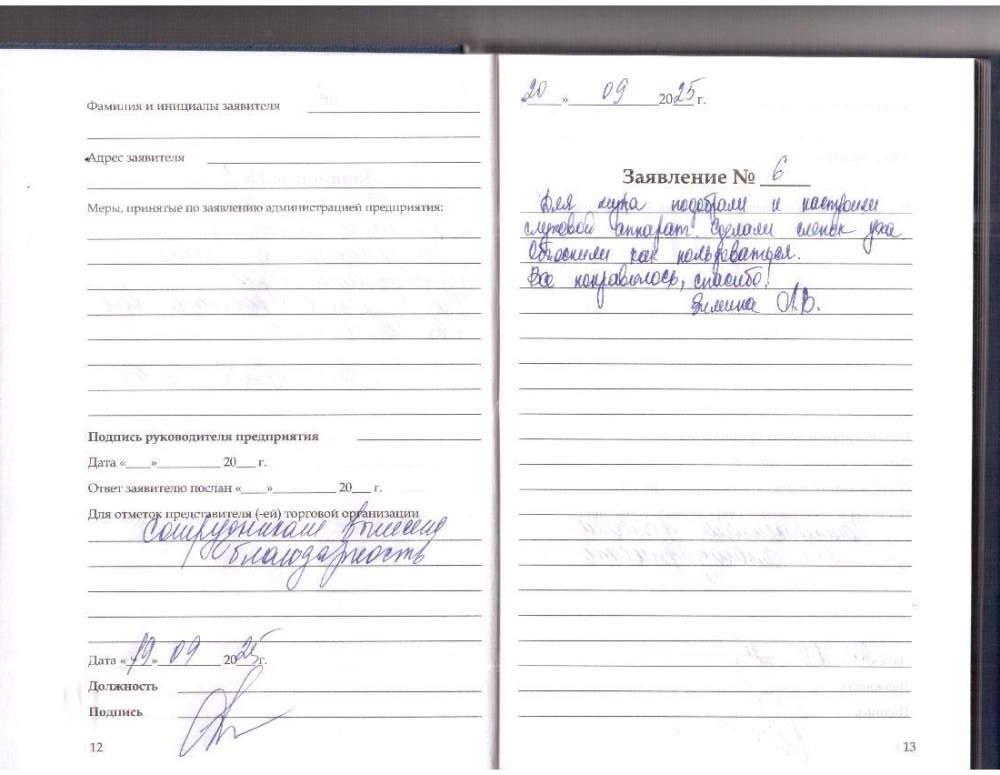 Фамилия и инициалы заявителя
Адрес заявителя
Меры, принятые по заявлению администрацией предприятия:
Подпись руководителя предприятия
Дата «___»__________ 20___ г.
Ответ заявителю послан «____»__________ 20___ г.
Для отметок представителя (-ей) торговой организации
Сотрудникам вынесена
благодарность
Дата «19» 09 2025г.
Должность
Подпись
12
20 » 09 2025 г.
Заявление № 6
Для мужа подобрали и настроили
слуховой аппарат. Сделали слепок уха.
Объяснили как пользоваться.
Все понравилось, спасибо!
Зимина Л.В.
13